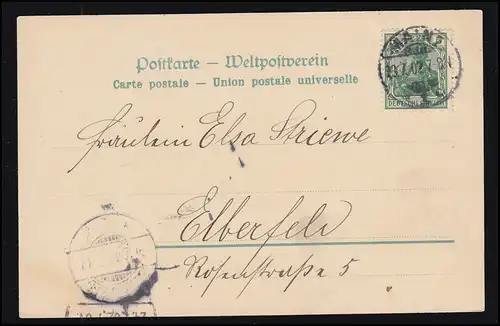 Postkarte — Weltpostverein
Carte postale — Union postale universelle
MAINZ
DEUTSCHES REICH
Fräulein Elsa Striewe
Elberfeld
Rosenstraße 5